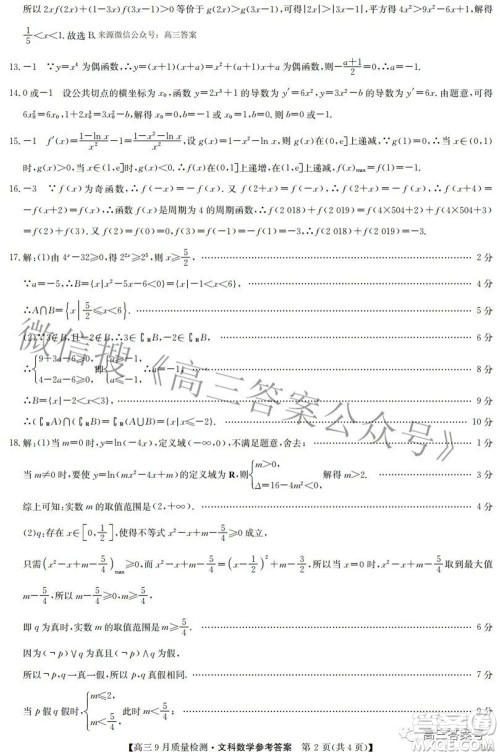 所以 2xf(2x)+(1-3x)f(3x-1)>0 等价于 g(2x)>g(3x-1), 可得|2x|>|3x-1|, 平方得 4x²>9x²-6x+1, 解得
1/5<x<1. 故选 B. 来源微信公众号：高三答案
13. -1 ∵y=x⁴ 为偶函数, ∴y=(x+1)(x+a)=x²+(a+1)x+a 为偶函数, 则-(a+1)/2=0, ∴a=-1.
14. 0 或-1 设公共切点的横坐标为 x₀, 函数 y=2x³+1 的导数为 y′=6x², y=3x²-b 的导数为 y′=6x. 由题意, 可得
6x₀²=6x₀, 1+2x₀³=3x₀²-b, 解得 x₀=0, b=-1 或 x₀=1, b=0. 则 b=0 或-1.
15. -1 f′(x)=(1-ln x)/x²-1=(1-x²-ln x)/x², 设 g(x)=1-x²-ln x, 则 g(x)在(0,e]上递减, ∵g(1)=0, ∴当 x∈(0,1)
时, g(x)>0, 当 x∈(1,e]时, g(x)<0. ∴f(x)在(0,1]上递增, 在(1,e]上递减, f(x)max=f(1)=-1.
16. -3 ∵f(x)为奇函数, ∴f(-x)=-f(x). 又 f(2+x)=f(-x), ∴f(2+x)=-f(x), ∴f(x+4)=
-f(x+2)=f(x), ∴函数 f(x)是周期为 4 的周期函数, ∴f(2 018)+f(2 019)=f(4×504+2)+f(4×504+3)
=f(2)+f(3). 又 f(2)=f(0)=0, f(3)=f(-1)=-f(1)=-3, ∴f(2 018)+f(2 019)=-3.
17. 解：(1)由 4ˣ-32≥0, 得 2²ˣ≥2⁵, 则 x≥5/2, 2 分
∵a=-5, ∴B={x|x²-5x-6<0}={x|-1<x<6}, 4 分
∴A∩B={x|5/2≤x<6}. 5 分
(2)∵3∉B, 且-2∉B, ∴3∈∁RB, -2∈∁RB, 6 分
∴{9+3a-6≥0, 4-2a-6≥0, 即{a≥-1, a≤-1, ∴a=-1. 8 分
∴B={x|-2<x<3}, 9 分
∴(∁RA)∩(∁RB)=∁R(A∪B)={x|x≤-2}. 10 分
18. 解：(1)当 m=0 时, y=ln(-4x), 定义域(-∞,0), 不满足题意, 舍去； 1 分
当 m≠0 时, 要使 y=ln(mx²-4x+m)的定义域为 R, 则{m>0, Δ=16-4m²<0, 解得 m>2. 3 分
综上可知：实数 m 的取值范围是(2,+∞). 4 分
(2)q：存在 x∈[0,1/2], 使得不等式 x²-x+m-5/4≥0 成立,
只需(x²-x+m-5/4)max≥0, 而 x²-x+m-5/4=(x-1/2)²+m-3/2, 所以当 x=0 时, x²-x+m-5/4取到最大值
m-5/4, 所以 m-5/4≥0, m≥5/4,
即 q 为真时, 实数 m 的取值范围是 m≥5/4. 6 分
因为(¬p)∨q 为真且(¬p)∧q 为假,
所以¬p, q 一真一假, 所以 p, q 真假相同. 7 分
当 p 假 q 假时, {m≤2, m<5/4, 此时 m<5/4；
【高三 9 月质量检测·文科数学参考答案 第 2 页(共 4 页)】
微信搜《高三答案公众号》
高三答案号